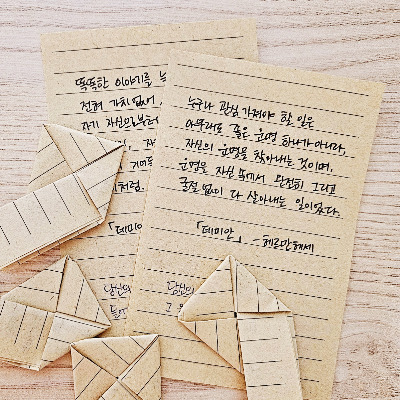 똑똑한 이야기를
전혀 가치 없어,
자기 자신으로부터
거북
처럼.
「데미
당신의
누구나 관심 가져야 할 일은
아무래도 좋은 운명 하나가 아니라,
자신의 운명을 찾아내는 것이며,
운명을 자신 속에서 완전히 그리고
굴절 없이 다 살아내는 일이었다.
「데미안」 - 헤르만헤세
당신의